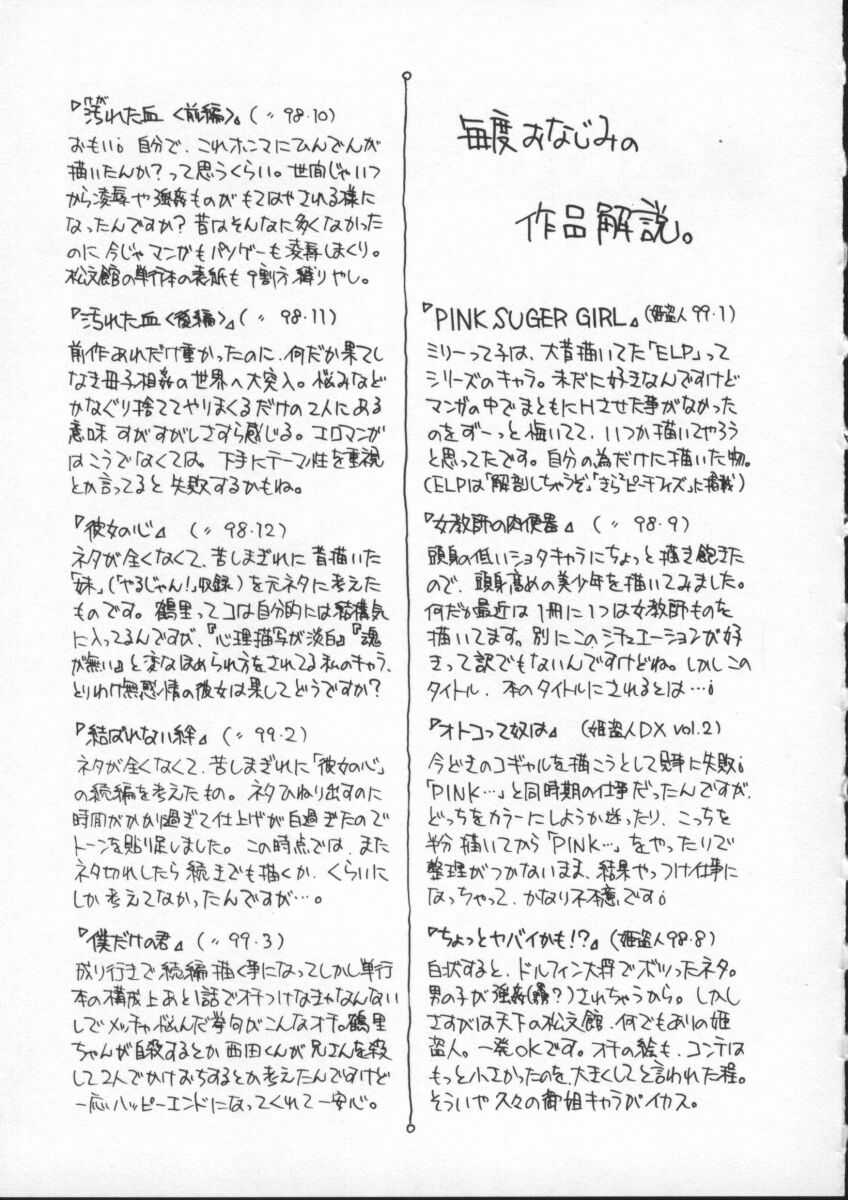 毎度おなじみの
作品解説。
『PINK SUGER GIRL』(姫盗人99・1)
ミリーって子は、大昔描いてた「ELP」って
シリーズのキャラ。未だに好きなんですけど
マンガの中でまともにHさせた事がなかった
のをずーっと悔いてて、いつか描いてやろう
と思ってたです。自分の為だけに描いた物。
(ELPは「解剖しちゃうぞ」「きら♡ピーチフィズ」に掲載)
『女教師の肉便器』(〃 98・9)
頭身の低いショタキャラにちょっと描き飽きた
ので、頭身高めの美少年を描いてみました。
何だか最近は1冊に1つは女教師ものを
描いてます。別にこのシチュエーションが好
きって訳でもないんですけどね。しかしこの
タイトル、本のタイトルにされるとは…!
『オトコって奴は』(姫盗人DX vol.2)
今どきのコギャルを描こうとして見事に失敗!
「PINK…」と同時期の仕事だったんですが、
どっちをカラーにしようか迷ったり、こっちを
半分描いてから「PINK…」をやったりで
整理がつかないまま、結果やっつけ仕事に
なっちゃって、かなり不本意です!
『ちょっとヤバイかも!?』(姫盗人98・8)
白状すると、ドルフィン大将でボツったネタ。
男の子が強姦(?)されちゃうから。しかし
さすがは天下の松文館、何でもありの姫
盗人。一発OKです。オチの絵も、コンテは
もっと小さかったのを、大きくしてと言われた程。
そういや久々の御姐キャラがイカス。
『汚れた血〈前編〉』(〃 98・10)
おもい! 自分で、これホンマにひんでんが
描いたんか?って思うくらい。世間じゃいつ
から凌辱や強姦ものがもてはやされる様に
なったんですか?昔はそんなに多くなかった
のに今じゃマンガもパソゲーも凌辱しまくり。
松文館の単行本の表紙も9割方縛りやし。
『汚れた血〈後編〉』(〃 98・11)
前作あれだけ重かったのに、何だか果てし
なき母子相姦の世界へ大突入。悩みなど
かなぐり捨ててやりまくるだけの2人にある
意味すがすがしさすら感じる。エロマンガ
はこうでなくては。下手にテーマ性を重視
とか言ってると失敗するかもね。
『彼女の心』(〃 98・12)
ネタが全くなくて、苦しまぎれに昔描いた
「妹」(「やるじゃん!」収録)を元ネタに考えた
ものです。鶴里ってコは自分的には結構気
に入ってるんですが、『心理描写が淡白』『魂
が無い』と変なほめられ方をされてる私のキャラ、
とりわけ無感情の彼女は果してどうですか?
『結ばれない絆』(〃 99・2)
ネタが全くなくて、苦しまぎれに「彼女の心」
の続編を考えたもの。ネタひねり出すのに
時間がかかり過ぎて仕上げが白過ぎたので
トーンを貼り足しました。この時点では、また
ネタ切れしたら続きでも描くか、くらいに
しか考えてなかったんですが…。
『僕だけの君』(〃 99・3)
成り行きで続編描く事になってしかし単行
本の構成上あと1話でオチつけなきゃなんない
しでメッチャ悩んだ挙句がこんなオチ。鶴里
ちゃんが自殺するとか西田くんが兄さんを殺
して2人でかけおちするとか考えたんですけど
一応ハッピーエンドになってくれて一安心。